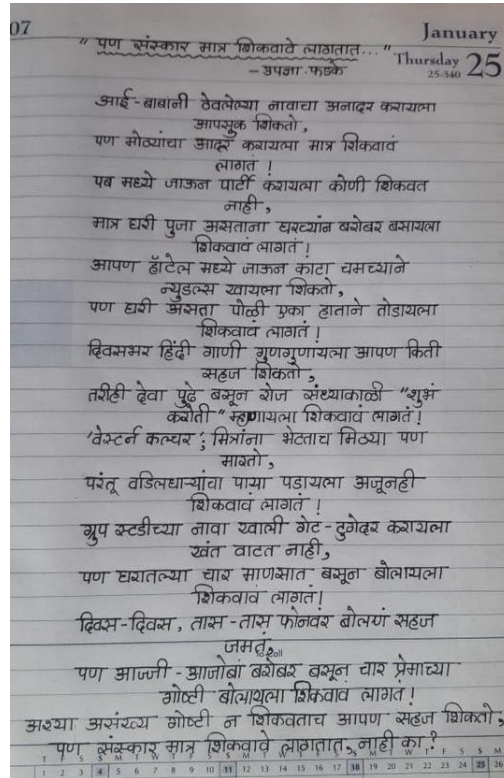 07
January
Thursday 25
25-340
" पण संस्कार मात्र शिकवावे लागतात..."
- उपज्ञा फडके
आई-बाबांनी ठेवलेल्या नावाचा अनादर करायला
आपसुक शिकतो,
पण मोठ्यांचा आदर करायला मात्र शिकवावं
लागतं !
पब मध्ये जाऊन पार्टी करायला कोणी शिकवत
नाही,
मात्र घरी पुजा असताना घरच्यांन बरोबर बसायला
शिकवावं लागतं !
आपण हॉटेल मध्ये जाऊन काटा चमच्याने
न्युडल्स खायला शिकतो,
पण घरी असता पोळी एका हाताने तोडायला
शिकवावं लागतं !
दिवसभर हिंदी गाणी गुणगुणायला आपण किती
सहज शिकतो,
तरीही देवा पुढे बसून रोज संध्याकाळी "शुभं
करोती" म्हणायला शिकवावं लागतं !
'वेस्टर्न कल्चर'; मित्रांना भेटताच मिठ्या पण
मारतो,
परंतू वडिलधाऱ्यांचा पाया पडायला अजूनही
शिकवावं लागतं !
ग्रुप स्टडीच्या नावा खाली गेट-टुगेदर करायला
खंत वाटत नाही,
पण घरातल्या चार माणसात बसून बोलायला
शिकवावं लागतं!
दिवस-दिवस, तास-तास फोनवर बोलणं सहज
जमतं,
पण आज्जी-आजोबां बरोबर बसून चार प्रेमाच्या
गोष्टी बोलायला शिकवावं लागतं !
अश्या असंख्य गोष्टी न शिकवताच आपण सहज शिकतो,
पण संस्कार मात्र शिकवावे लागतात, नाही का ?
T F S S M T W T F S S M T W T F S S M T W T F S S M
1 2 3 4 5 6 7 8 9 10 11 12 13 14 15 16 17 18 19 20 21 22 23 24 25